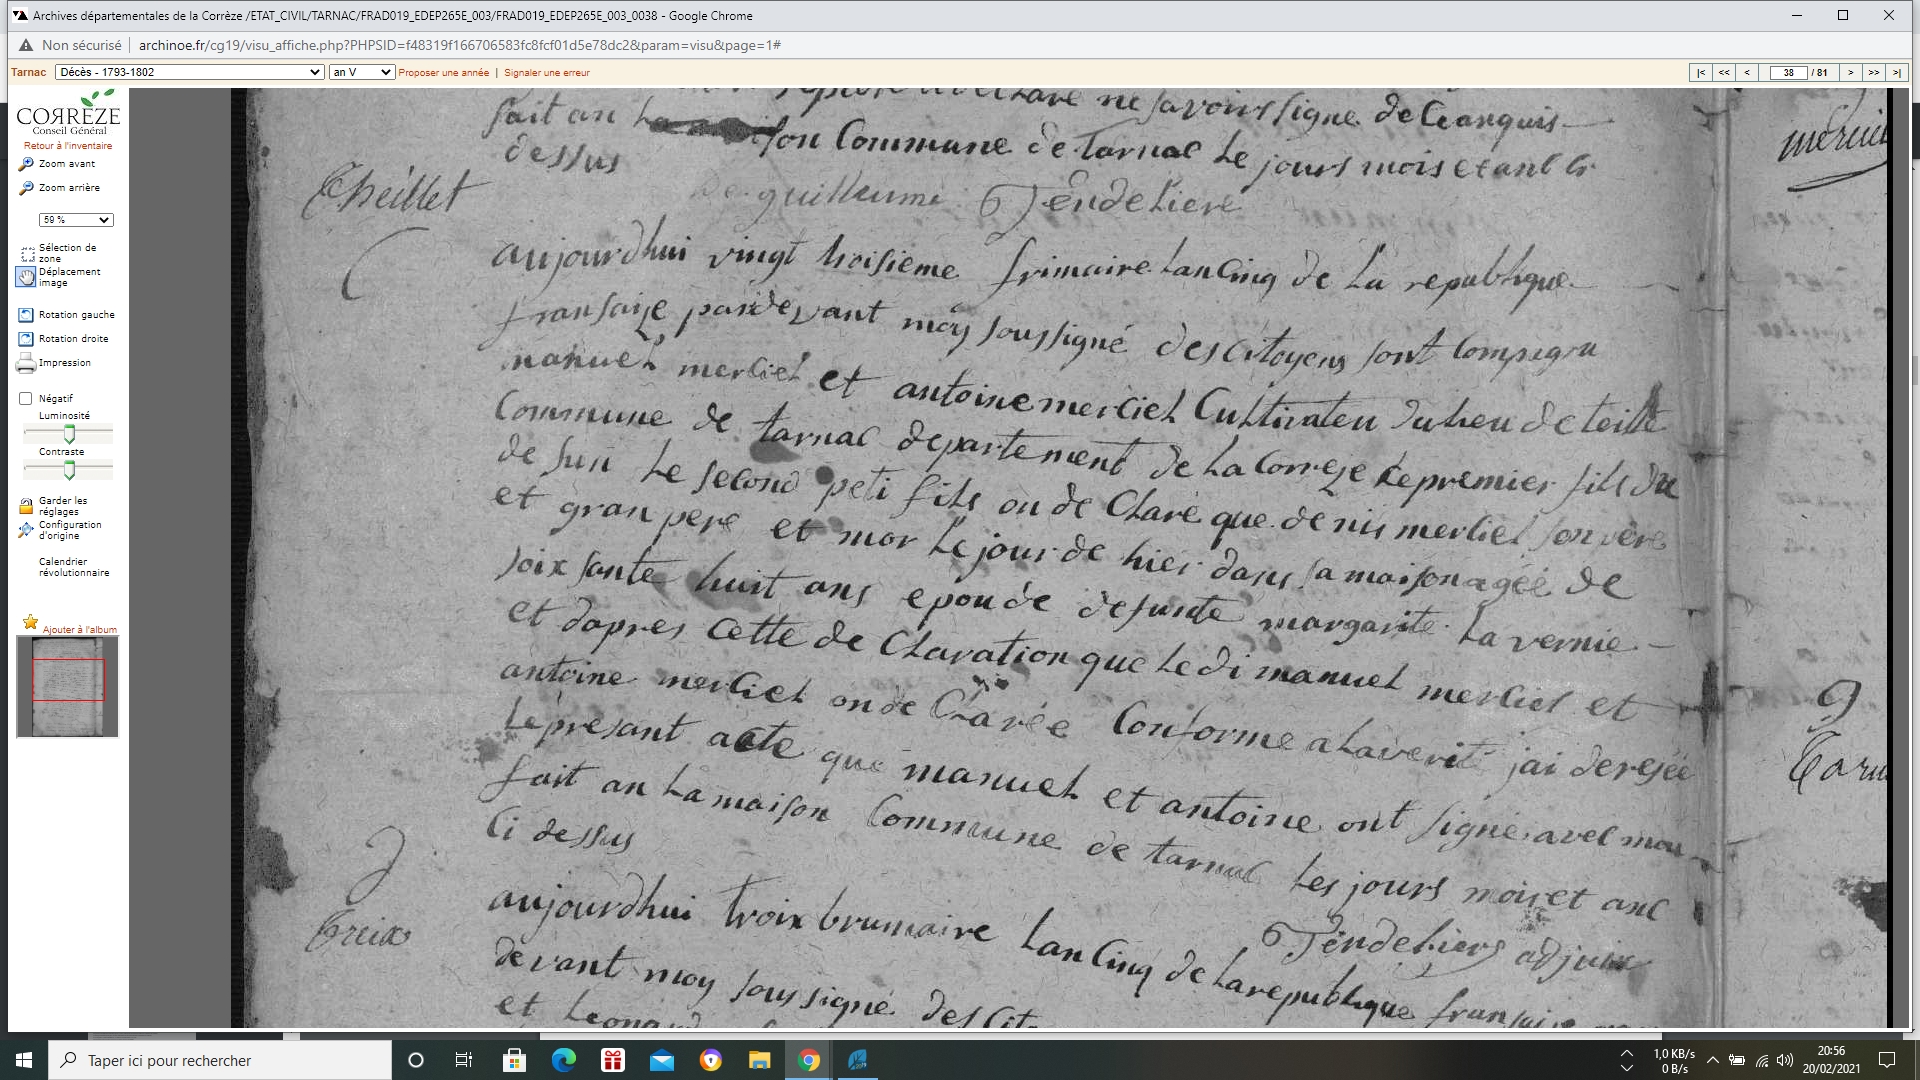 Archives départementales de la Corrèze /ETAT_CIVIL/TARNAC/FRAD019_EDEP265E_003/FRAD019_EDEP265E_003_0038 - Google Chrome
Non sécurisé archinoe.fr/cg19/visu_affiche.php?PHPSID=f48319f166706583fc8fcf01d5e78dc2&param=visu&page=1#
Tarnac Décès - 1793-1802 an V Proposer une année | Signaler une erreur |< << < 38 / 81 > >> >|
CORRÈZE
Conseil Général
Retour à l'inventaire
Zoom avant
Zoom arrière
59 %
Sélection de
zone
Déplacement
image
Rotation gauche
Rotation droite
Impression
Négatif
Luminosité
Contraste
Garder les
réglages
Configuration
d'origine
Calendrier
révolutionnaire
Ajouter à l'album
ne savoirs signe de ce anquis
fait an La son Commune de Tarnac Le jours mois et anl ci
dessus
guillaume Tendeliere
Theillet
aujourdhui vingt troisieme frimaire lan Cinq de La republique
fransaize pardevant moy soussigné des Citoyens sont Compara
manuel merciel et antoine merciel Cultivateu du lieu de teille
Commune de tarnac departement de La Correze Le premier fils du
de fun Le second peti fils on de Claré que denis merciel son pere
et gran pere et mor Le jour de hier dans sa maison agée de
soixsante huit ans epou de defunte margarite La vernie
et dapres Cette de Claration que Le di manuel merciel et
antoine merciel on de Clarée Conforme a La verité jai deresée
Le presant acte que manuel et antoine ont signé avec mou
fait an La maison Commune de tarnac Les jours mois et anl
Ci dessus
Tendeliers adjuin
Treix
aujourdhui troix brumaire Lan Cinq de La republique fransaize
devant moy soussigné des Cito
et Leonard
merciel
Tarn
Taper ici pour rechercher
1,0 KB/s
0 B/s
20:56
20/02/2021